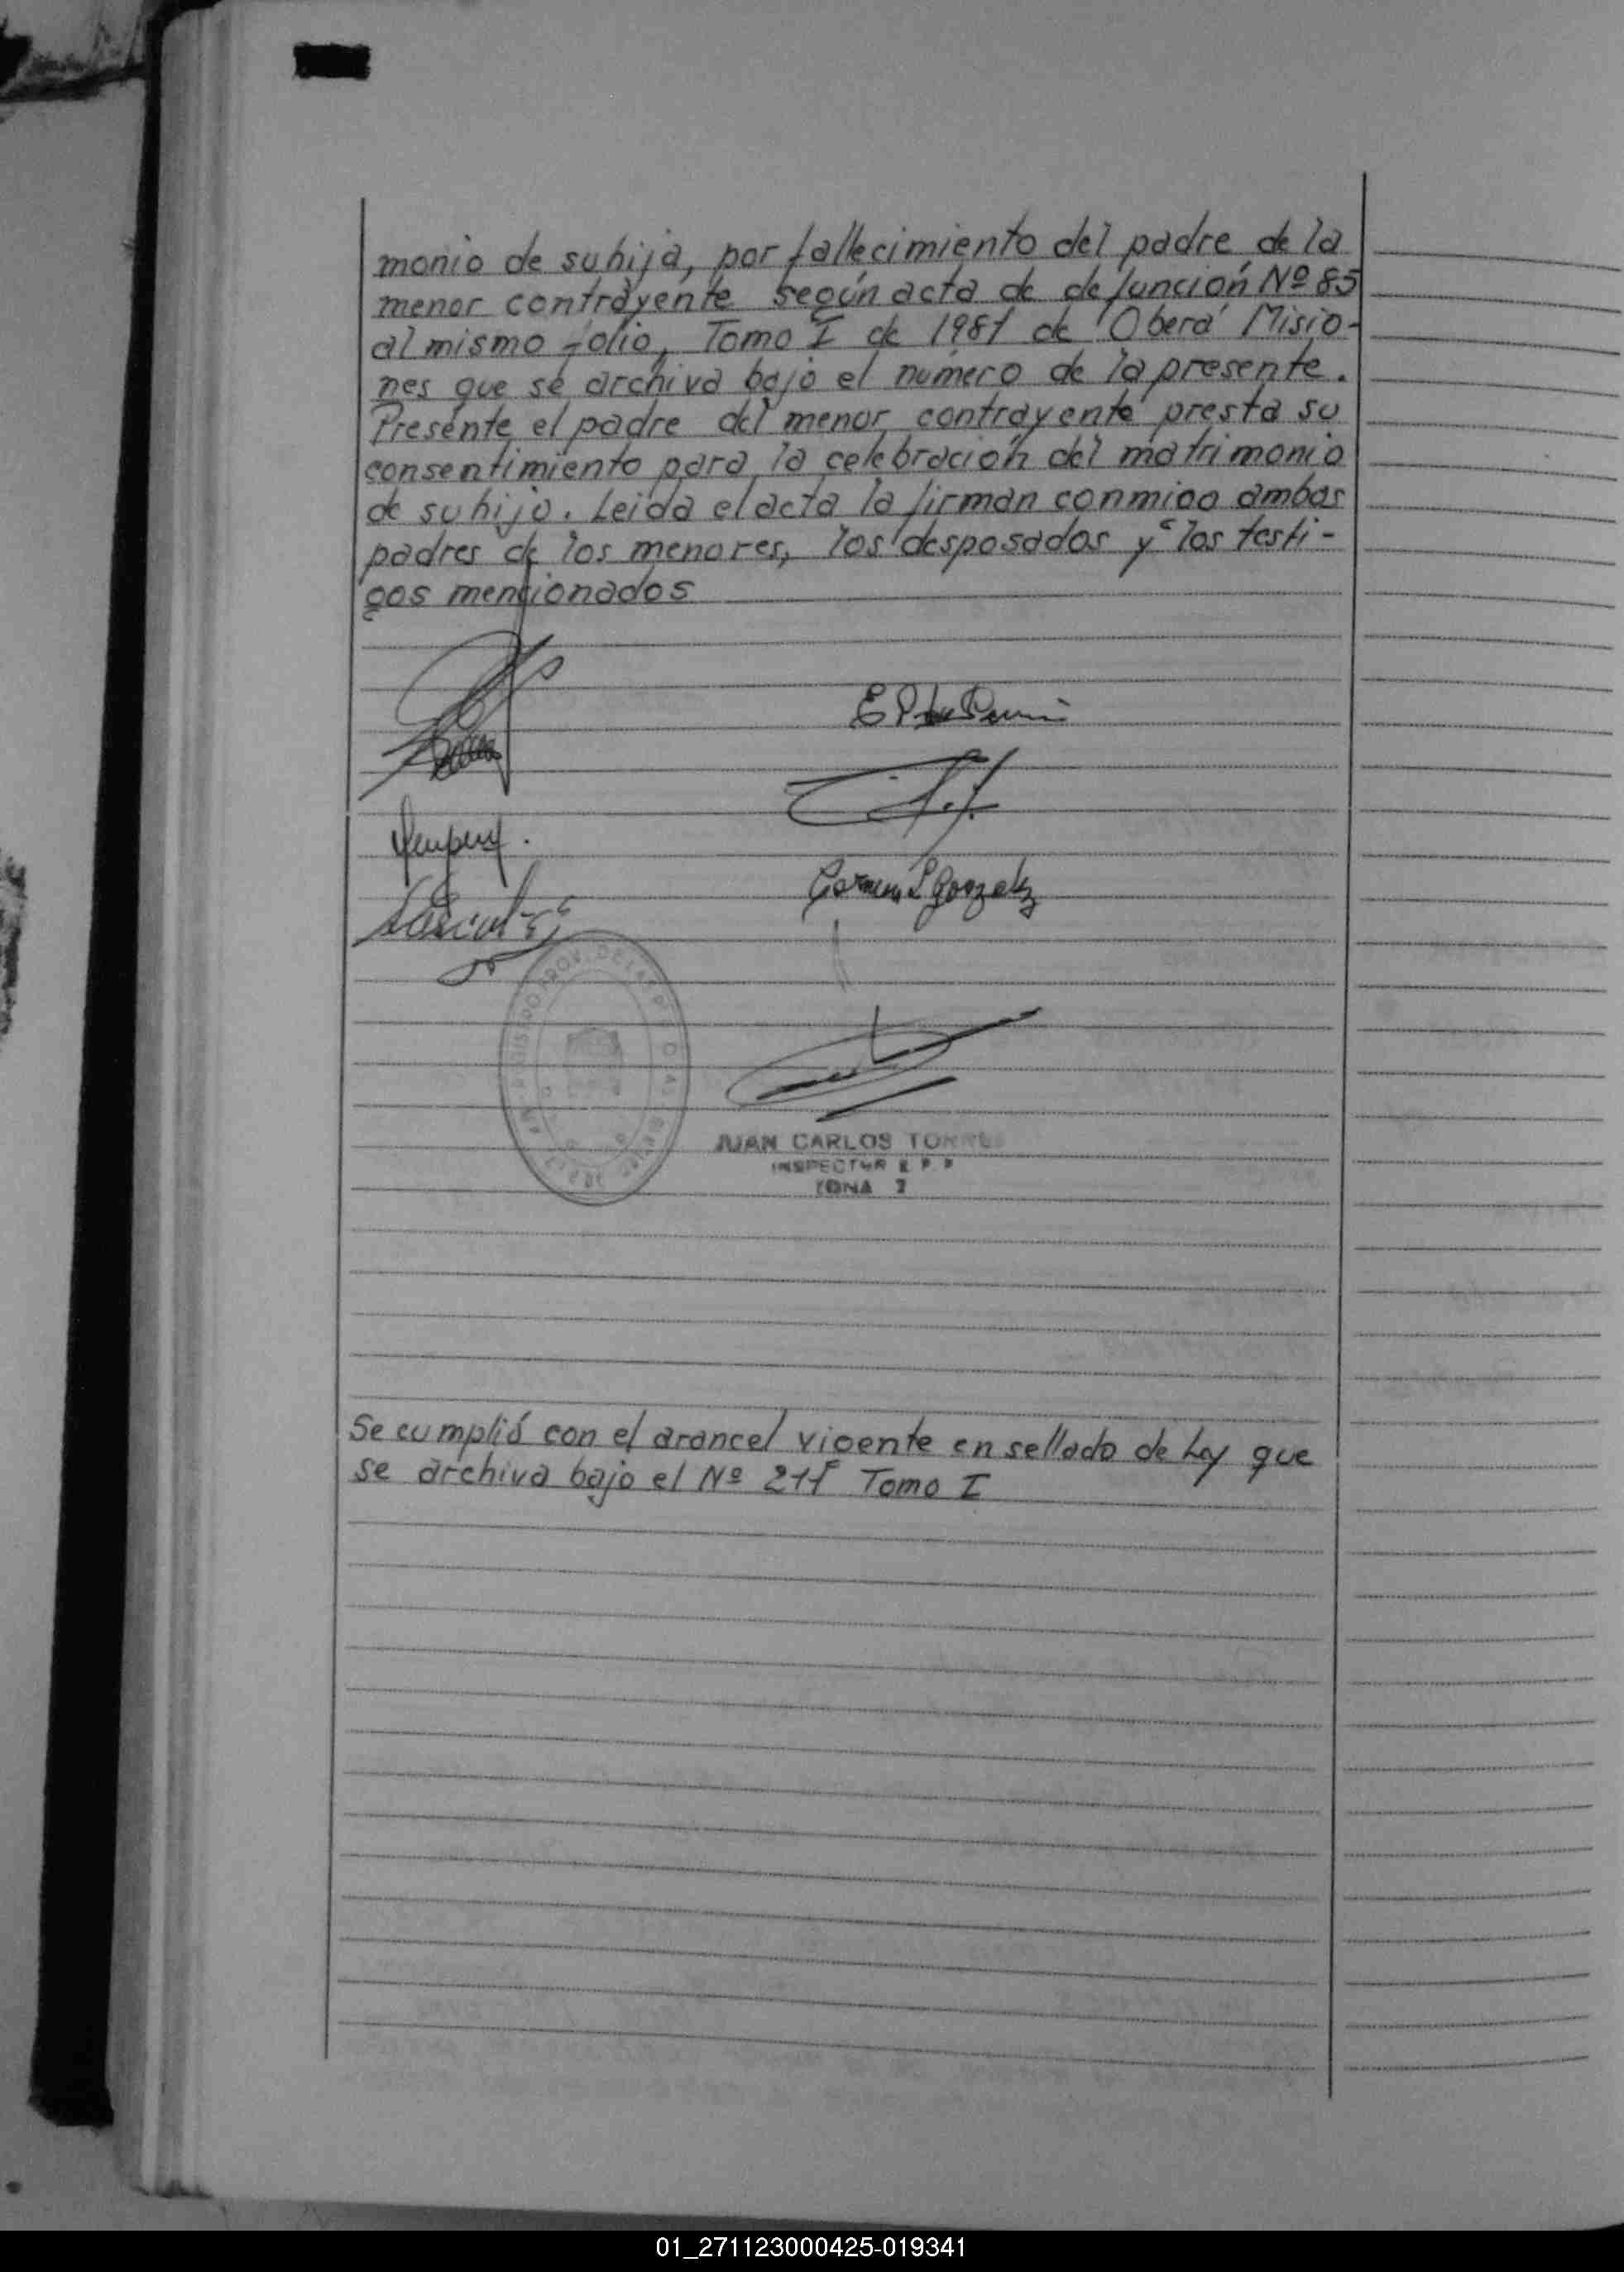 monio de su hija, por fallecimiento del padre de la
menor contrayente según acta de defunción Nº 85
al mismo folio, Tomo I de 1981 de Oberá Misio-
nes que se archiva bajo el número de la presente.
Presente el padre del menor contrayente presta su
consentimiento para la celebración del matrimonio
de su hijo. Leida el acta la firman conmigo ambos
padres de los menores, los desposados y los testi-
gos mencionados
Carmen L Gonzalez
JUAN CARLOS TORRES
INSPECTOR R.P.P
ZONA
Se cumplió con el arancel vigente en sellado de Ley que
se archiva bajo el Nº 211 Tomo I
01_271123000425-019341